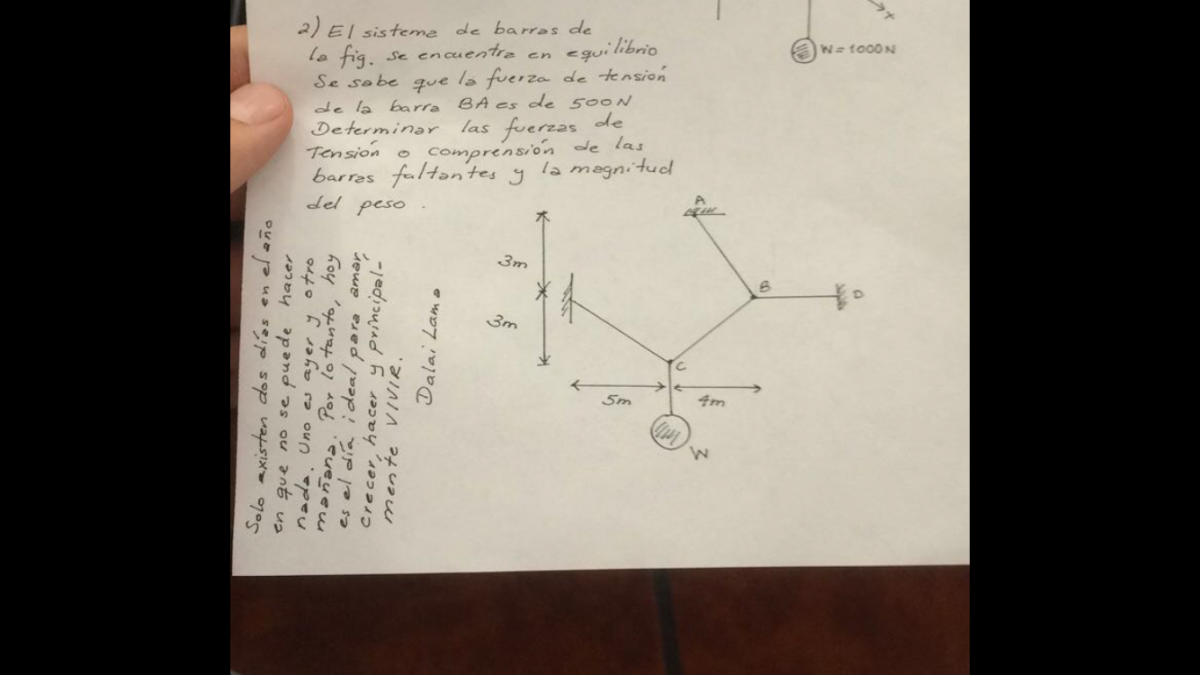 x
W=1000N
2) El sistema de barras de
la fig. se encuentra en equilibrio
Se sabe que la fuerza de tensión
de la barra BA es de 500N
Determinar las fuerzas de
Tensión o comprensión de las
barras faltantes y la magnitud
del peso.
A
3m
B
D
3m
C
5m
4m
W
Solo existen dos días en el año
en que no se puede hacer
nada. Uno es ayer y otro
mañana. Por lo tanto, hoy
es el día ideal para amar
crecer, hacer y principal-
mente VIVIR.
Dalai Lama